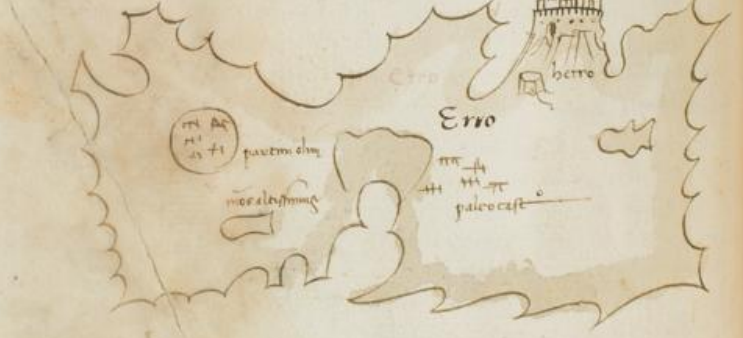 herro
Erro
parteni olim
mõs altissimus
paleocast